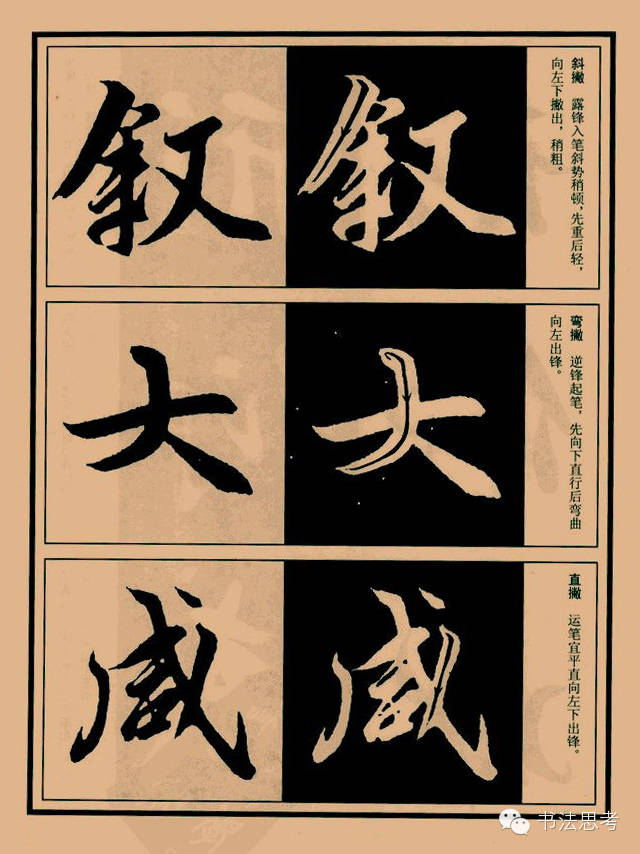 斜撇　露锋入笔斜势稍顿，先重后轻，
向左下撇出，稍粗。
叙
叙
弯撇　逆锋起笔，先向下直行后弯曲
向左出锋。
大
大
直撇　运笔宜平直向左下出锋。
咸
咸
书法思考